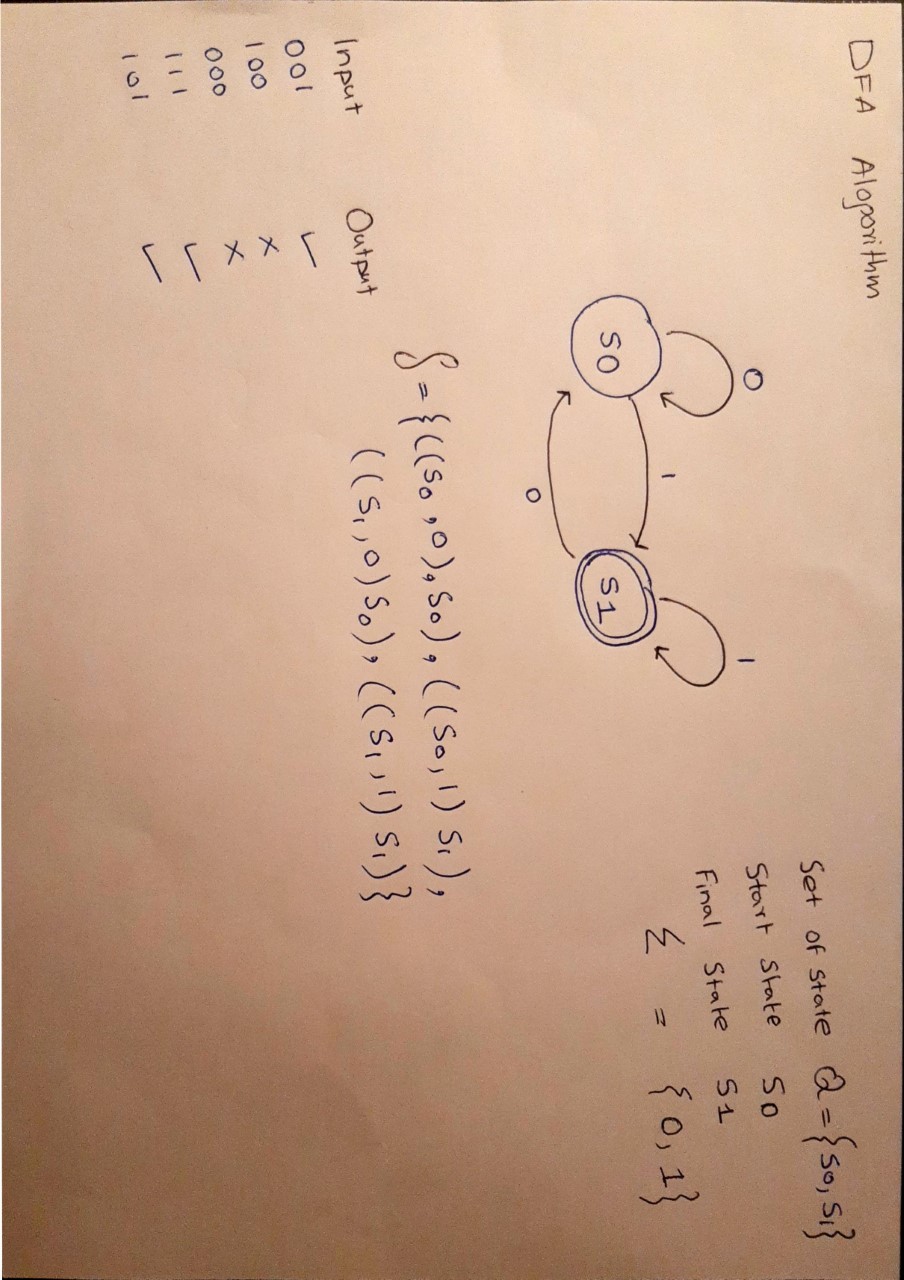 DFA Aloporithm
Set of state Q = {S0, S1}
Start State S0
Final State S1
Σ = {0, 1}
0
1
1
S0
S1
0
δ = {((S0, 0), S0), ((S0, 1) S1),
((S1, 0) S0), ((S1, 1) S1)}
Input Output
001 ✓
100 ×
000 ×
111 ✓
101 ✓